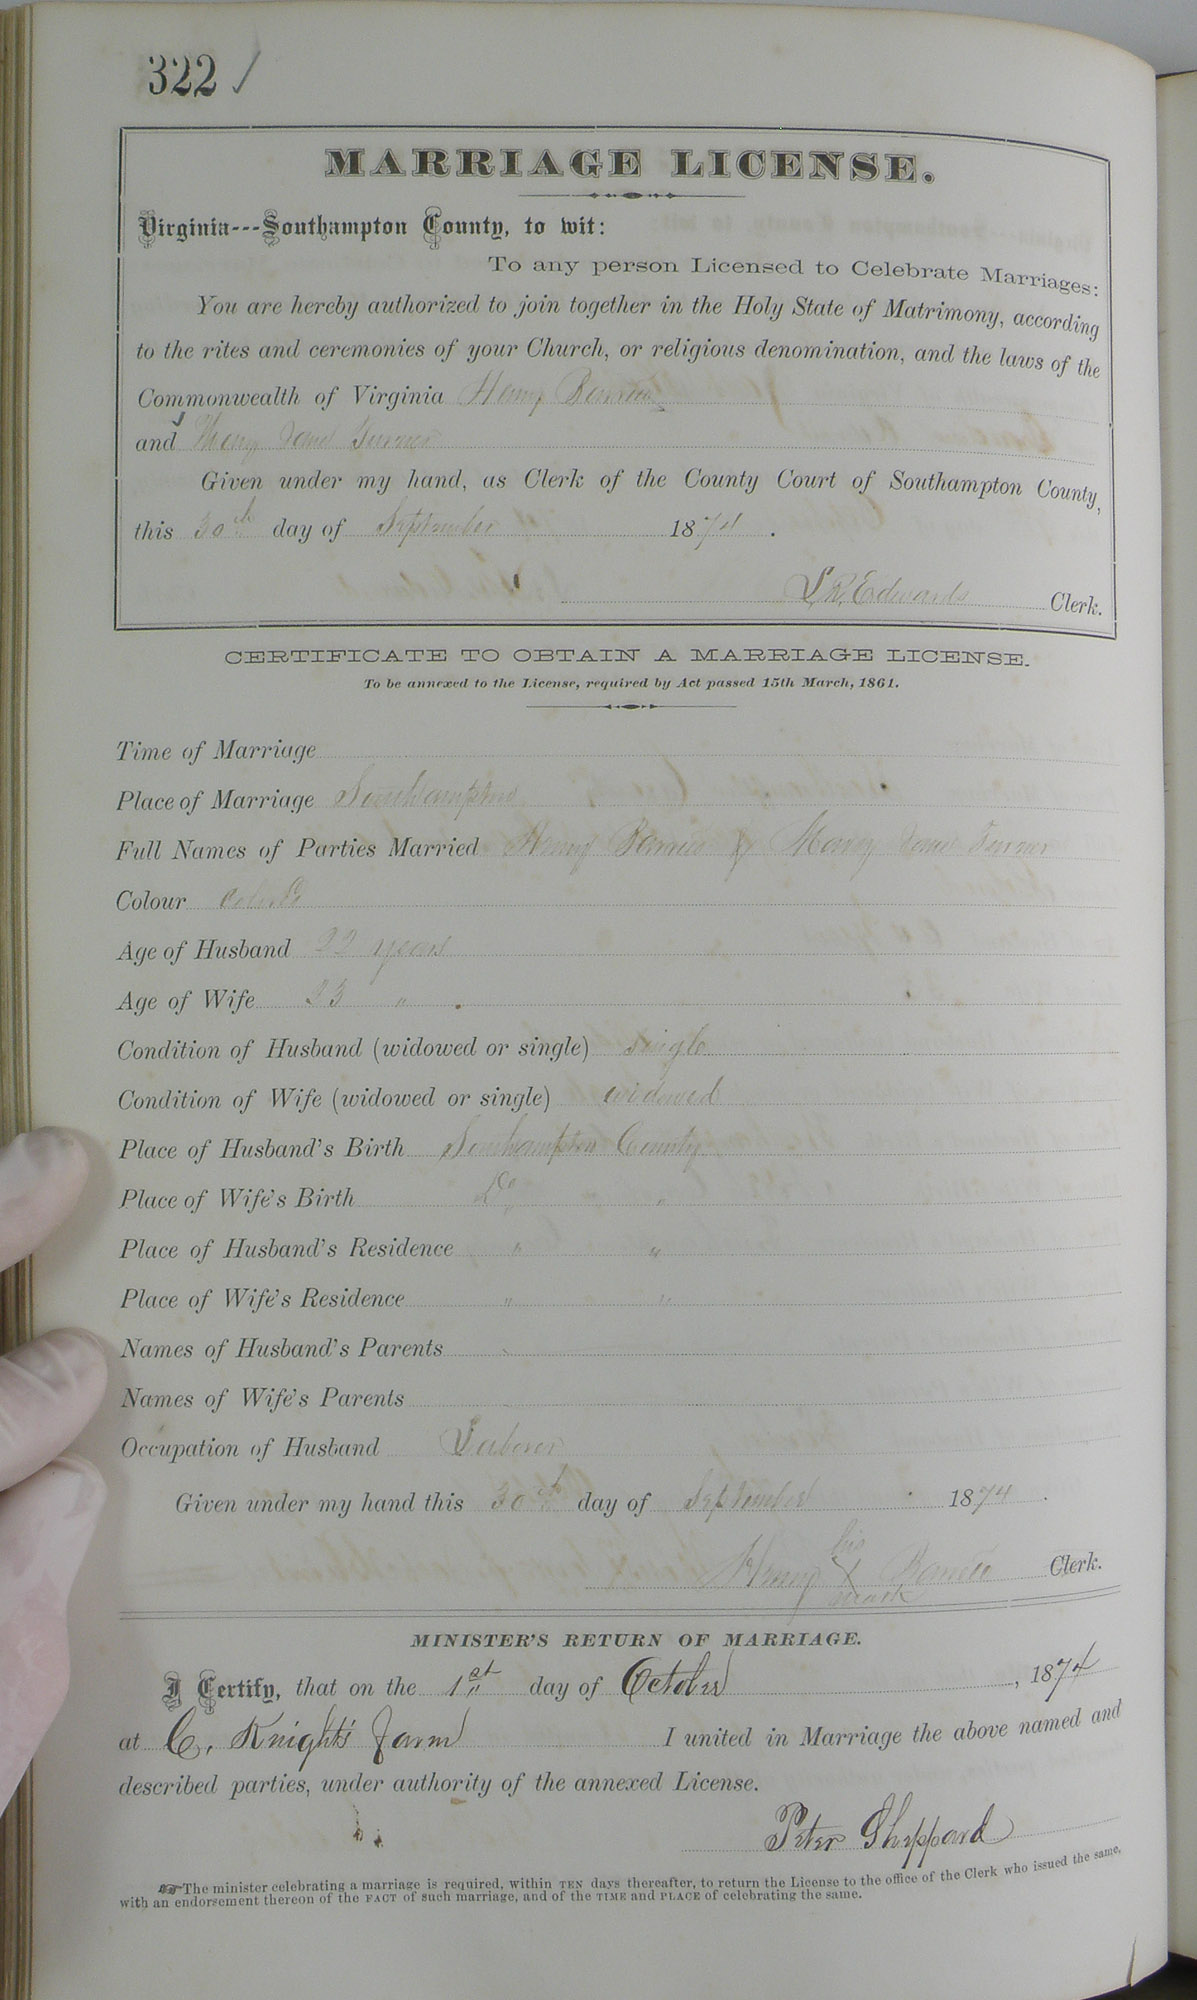 322 /
MARRIAGE LICENSE.
Virginia---Southampton County, to wit:
To any person Licensed to Celebrate Marriages:
You are hereby authorized to join together in the Holy State of Matrimony, according
to the rites and ceremonies of your Church, or religious denomination, and the laws of the
Commonwealth of Virginia Henry
and Jane Turner
Given under my hand, as Clerk of the County Court of Southampton County,
this 30th day of September 1874.
L. R. Edwards Clerk.
CERTIFICATE TO OBTAIN A MARRIAGE LICENSE.
To be annexed to the License, required by Act passed 15th March, 1861.
Time of Marriage
Place of Marriage Southampton
Full Names of Parties Married Henry & Jane Turner
Colour Colord
Age of Husband 22 years
Age of Wife 33 "
Condition of Husband (widowed or single) single
Condition of Wife (widowed or single) widowed
Place of Husband's Birth Southampton County
Place of Wife's Birth Do " "
Place of Husband's Residence " "
Place of Wife's Residence " "
Names of Husband's Parents
Names of Wife's Parents
Occupation of Husband Laborer
Given under my hand this 30th day of September 1874.
Henry his X mark Clerk.
MINISTER'S RETURN OF MARRIAGE.
I Certify, that on the 1st day of October, 1874
at C. Knight's Farm I united in Marriage the above named and
described parties, under authority of the annexed License.
Peter Sheppard
☞The minister celebrating a marriage is required, within TEN days thereafter, to return the License to the office of the Clerk who issued the same,
with an endorsement thereon of the FACT of such marriage, and of the TIME and PLACE of celebrating the same.